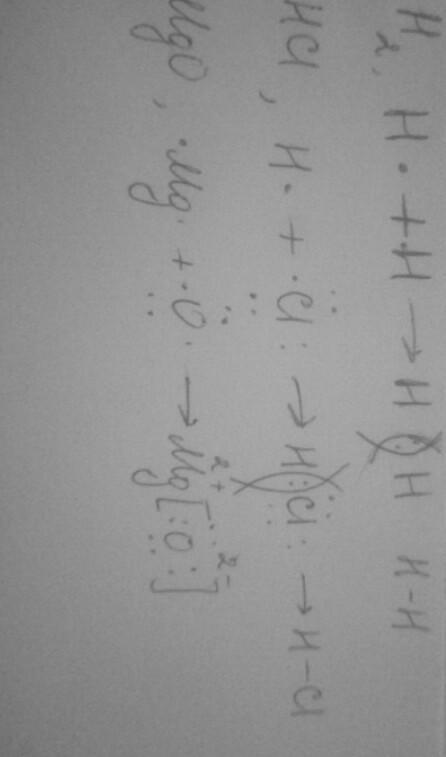 H₂, H· + ·H → H : H H-H
HCl, H· + ·C̤̈l: → H : C̤̈l: → H-Cl
MgO, ·Mg· + ·Ö̤· → Mg²⁺[:Ö̤:]²⁻